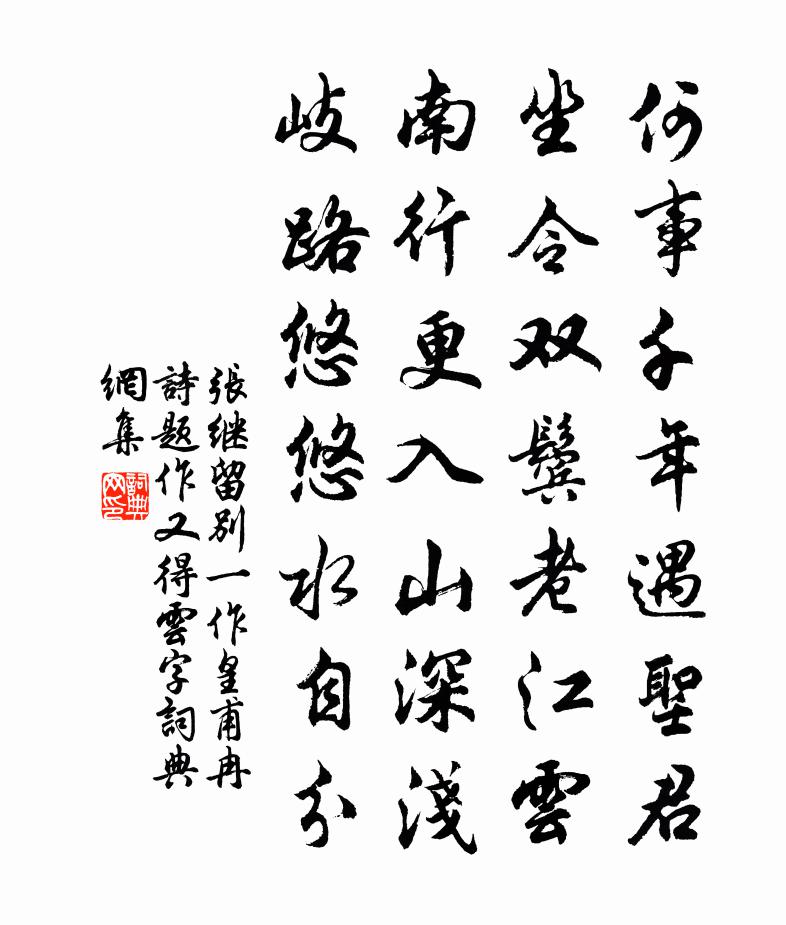 何事千年遇聖君
坐令双鬓老江雲
南行更入山深淺
岐路悠悠水自分
張继留别一作皇甫冉
詩題作又得雲字詞典
網集
詞典網印